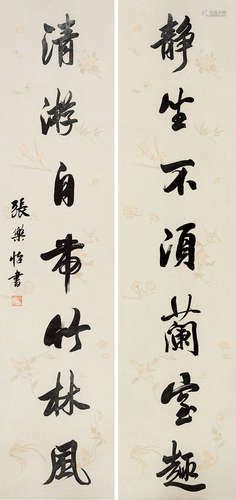 靜坐不須蘭室趣
清游自帶竹林風
張樂怡書